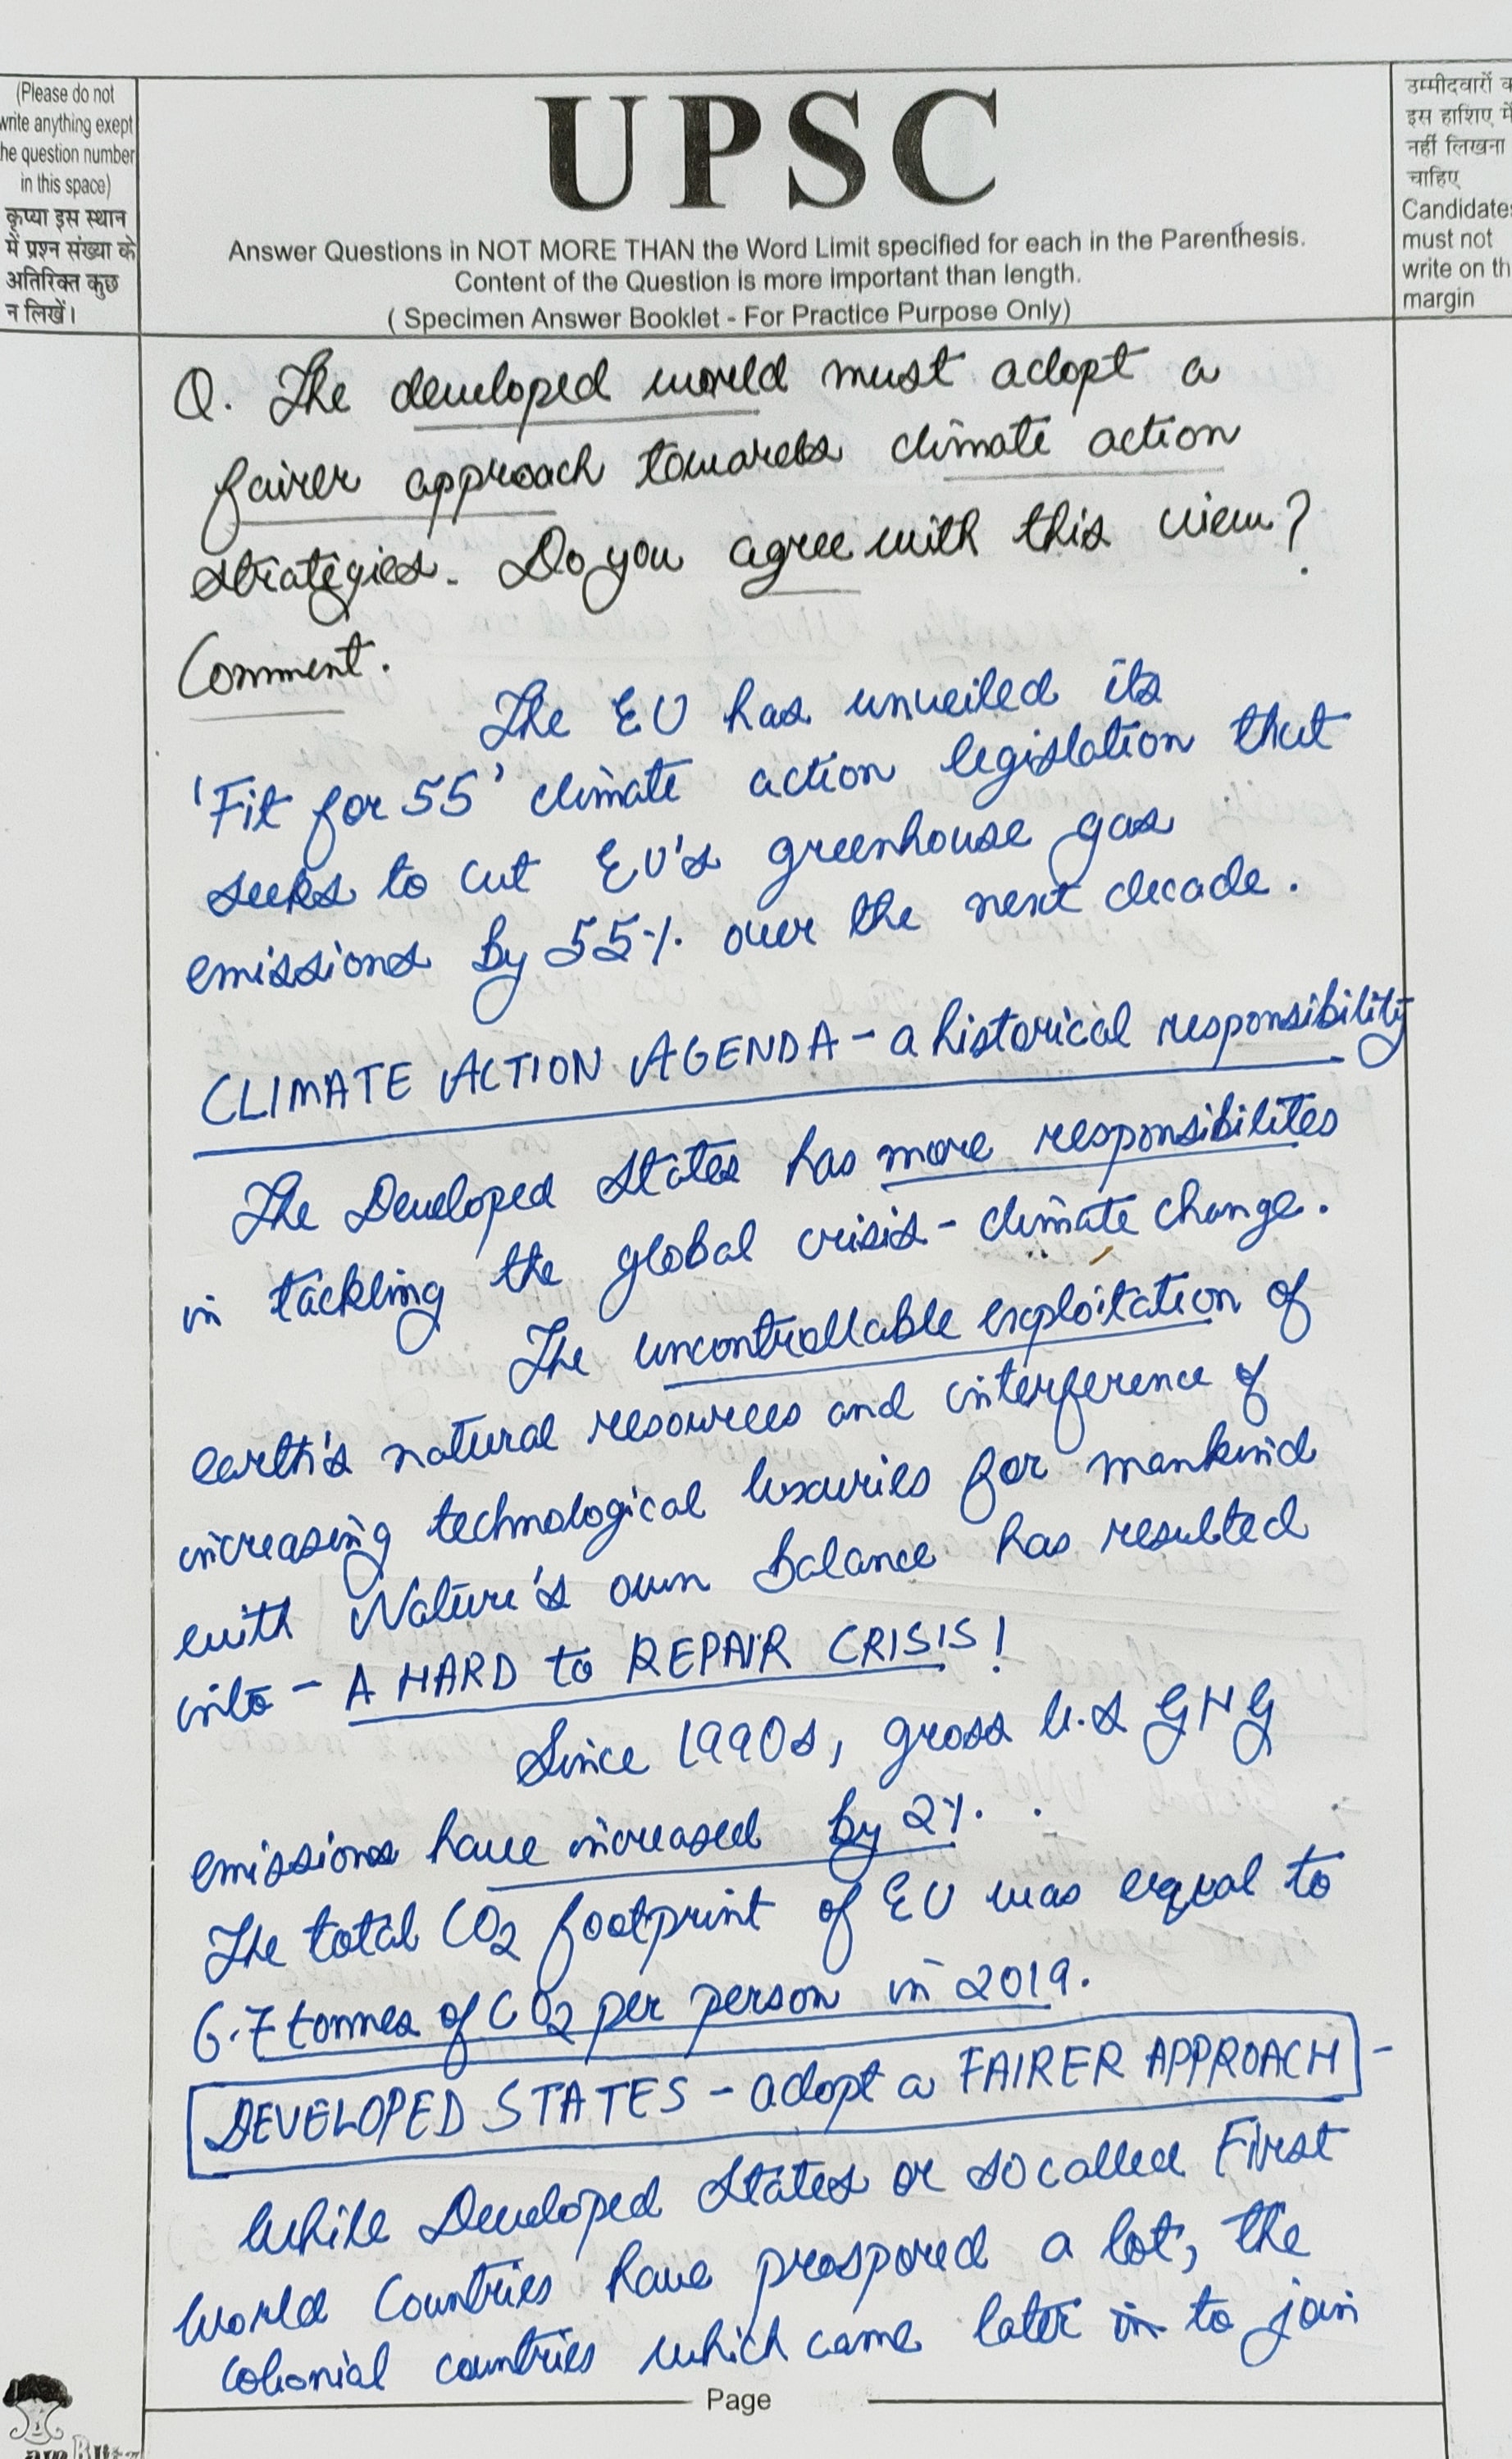 (Please do not
write anything exept
the question number
in this space)
कृप्या इस स्थान
में प्रश्न संख्या के
अतिरिक्त कुछ
न लिखें।
UPSC
Answer Questions in NOT MORE THAN the Word Limit specified for each in the Parenthesis.
Content of the Question is more important than length.
( Specimen Answer Booklet - For Practice Purpose Only)
उम्मीदवारों
इस हाशिए में
नहीं लिखना
चाहिए
Candidates
must not
write on th
margin
Q. The developed world must adopt a
fairer approach towards climate action
strategies. Do you agree with this view?
Comment.
The EU has unveiled its
'Fit for 55' climate action legislation that
seeks to cut EU's greenhouse gas
emissions by 55% over the next decade.
CLIMATE ACTION AGENDA - a historical responsibility
The Developed States has more responsibilites
in tackling the global crisis - climate change.
The uncontrollable exploitation of
earth's natural resources and interference of
increasing technological luxuries for mankind
with Nature's own balance has resulted
into - A HARD to REPAIR CRISIS!
Since 1990s, gross U.S GHG
emissions have increased by 2%.
The total CO2 footprint of EU was equal to
6.7 tonnes of CO2 per person in 2019.
DEVELOPED STATES - adopt a FAIRER APPROACH -
While Developed States or so called First
World Countries have prospored a lot, the
colonial countries which came later in to join
Page